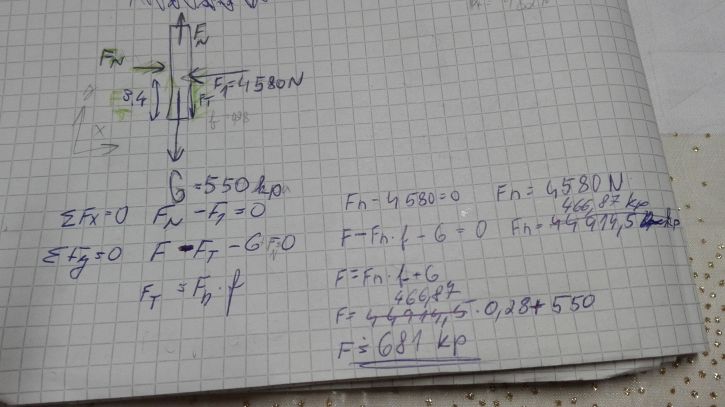 F_N
F_N
F_1=4580N
3,4
F_T
x
G=550 kp
ΣFx=0 F_N - F_1 = 0
ΣFy=0 F - F_T - G = 0
F_T = F_n · f
Fn - 4580 = 0
Fn = 4580 N
F - Fn · f - G = 0
466,87 kp
Fn = 44914,5 kp
F = Fn · f + G
466,87
F = 44914,5 · 0,28 + 550
F ≐ 681 kp